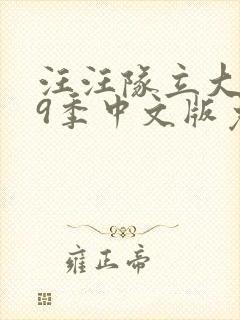 汪汪隊立大
9季中文版
雍正帝